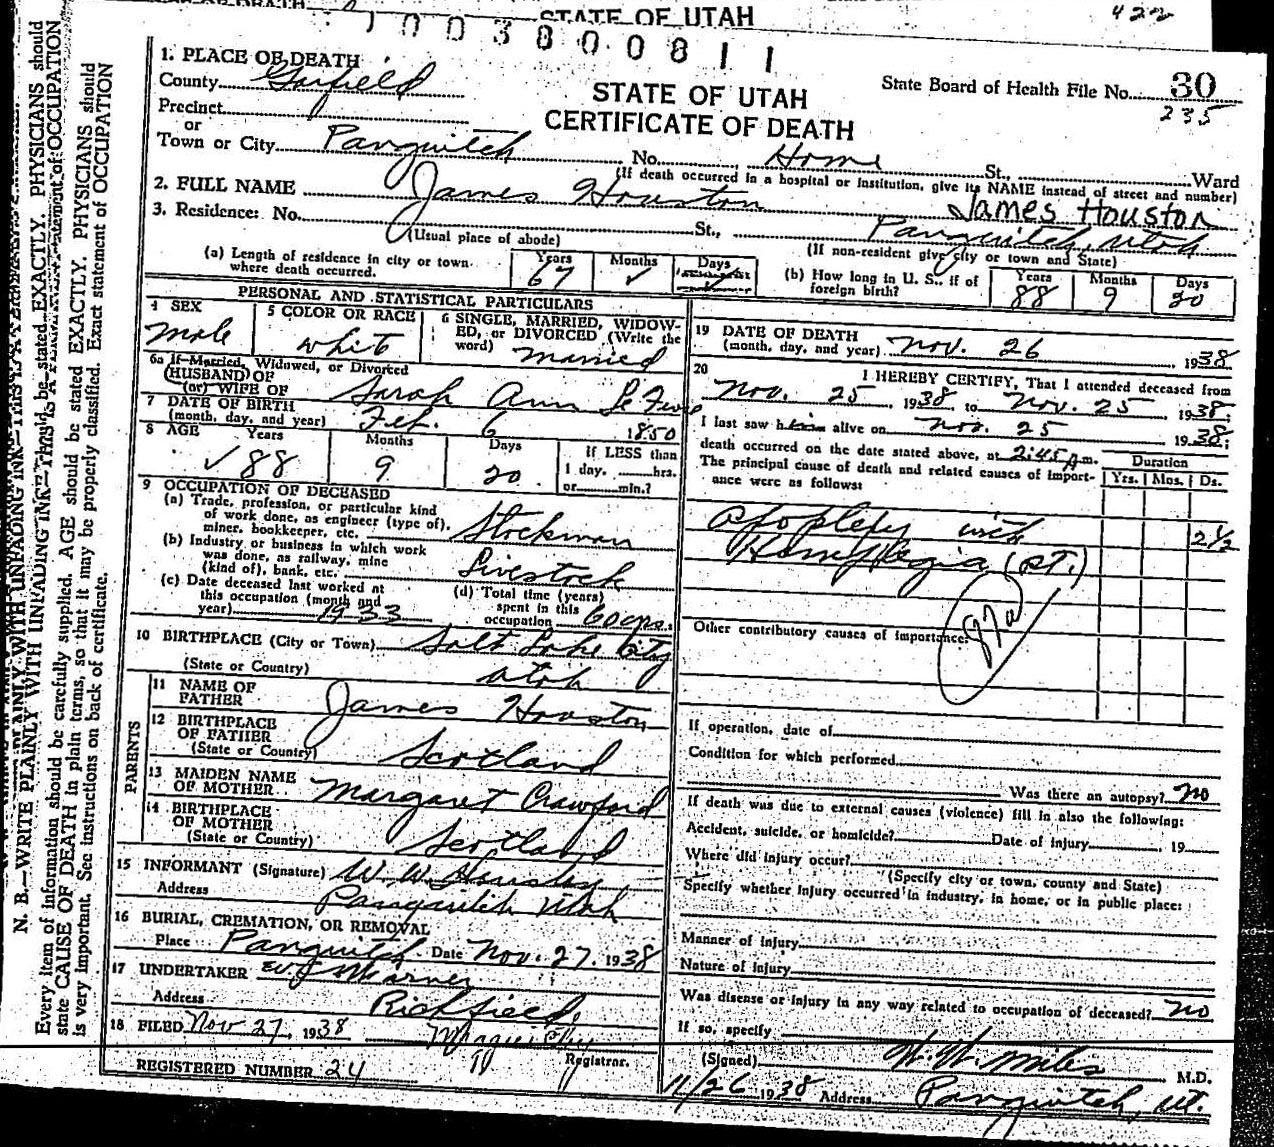 STATE OF UTAH
422
1003800811
1. PLACE OF DEATH
County Garfield
State Board of Health File No. 30
235
STATE OF UTAH
CERTIFICATE OF DEATH
Precinct
or
Town or City Panguitch No. Home St., Ward
(If death occurred in a hospital or institution, give its NAME instead of street and number)
2. FULL NAME James Houston James Houston
3. Residence: No. St., Panguitch, Utah
(Usual place of abode) (If non-resident give city or town and State)
(a) Length of residence in city or town where death occurred. Years 67 Months ✓ Days
(b) How long in U. S., if of foreign birth? Years 88 Months 9 Days 20
PERSONAL AND STATISTICAL PARTICULARS
4 SEX
Male
5 COLOR OR RACE
White
6 SINGLE, MARRIED, WIDOWED, or DIVORCED (Write the word) Married
6a If Married, Widowed, or Divorced
(HUSBAND OF
(or) WIFE OF Sarah Ann Le Fevre
7 DATE OF BIRTH
(month, day, and year) Feb. 6 1850
8 AGE Years ✓ 88 Months 9 Days 20
If LESS than
1 day, hrs.
or min.?
9 OCCUPATION OF DECEASED
(a) Trade, profession, or particular kind
of work done, as engineer (type of),
miner, bookkeeper, etc. Stockman
(b) Industry or business in which work
was done, as railway, mine
(kind of), bank, etc. Livestock
(c) Date deceased last worked at
this occupation (month and
year) 1933
(d) Total time (years)
spent in this
occupation 60 yrs.
10 BIRTHPLACE (City or Town) Salt Lake City
(State or Country) Utah
PARENTS
11 NAME OF
FATHER James Houston
12 BIRTHPLACE
OF FATHER
(State or Country) Scotland
13 MAIDEN NAME
OF MOTHER Margaret Crawford
14 BIRTHPLACE
OF MOTHER
(State or Country) Scotland
15 INFORMANT (Signature) W. W. Houston
Address Panguitch Utah
16 BURIAL, CREMATION, OR REMOVAL
Place Panguitch Date Nov. 27, 1938
17 UNDERTAKER Warner
Address Richfield
18 FILED Nov 27, 1938
Registrar.
REGISTERED NUMBER 24
19 DATE OF DEATH
(month, day, and year) Nov. 26 1938
20 I HEREBY CERTIFY, That I attended deceased from
Nov. 25 1938 to Nov. 25, 1938;
I last saw him alive on Nov. 25 1938;
death occurred on the date stated above, at 2:45 A m.
The principal cause of death and related causes of importance were as follows:
Duration
Yrs. Mos. Ds.
Apoplexy with 2½
Hemiplegia (rt.)
Other contributory causes of importance:
If operation, date of
Condition for which performed
Was there an autopsy? No
If death was due to external causes (violence) fill in also the following:
Accident, suicide, or homicide? Date of injury , 19
Where did injury occur?
(Specify city or town, county and State)
Specify whether injury occurred in industry, in home, or in public place:
Manner of injury
Nature of injury
Was disease or injury in any way related to occupation of deceased? No
If so, specify
(Signed) W. W. Miles M.D.
11/26 1938 Address Panguitch, Ut.
N. B.—WRITE PLAINLY WITH UNFADING INK—THIS IS A
Every item of information should be carefully supplied. AGE should be stated EXACTLY. PHYSICIANS should
state CAUSE OF DEATH in plain terms, so that it may be properly classified. Exact statement of OCCUPATION
is very important. See instructions on back of certificate.